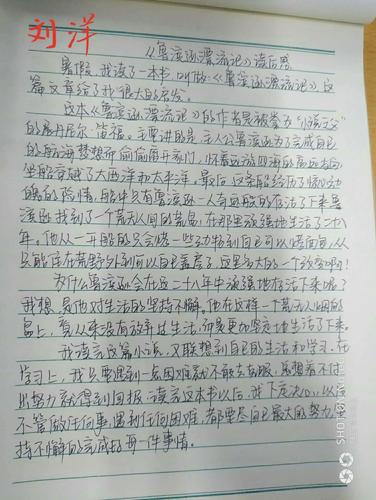 刘洋
《鲁滨逊漂流记》读后感
暑假,我读了一本书,叫做《鲁滨逊漂流记》这
篇文章给了我很大的启发。
这本《鲁滨逊漂流记》的作者是被誉为"小说之父"
的展丹尼尔·笛福。主要讲的是:主人公鲁滨逊为了完成自己
的航海梦想而偷偷离开家门,怀着远游四海的高远志向
坐船穿越了大西洋和太平洋。最后,这条船经历了惊心动
魄的险情,船中只有鲁滨逊一人奇迹般的存活了下来鲁
滨逊找到了一个荒无人间的荒岛,在那里顽强地生活了二十八
年。他从一开始的只会烤一些动物到自己可以烤面包,从
只能住在荒野外到可以自己盖房子,这是多大的一个改变啊!
为什么鲁滨逊会在这二十八年中顽强地存活下来呢?
我想,是他对生活的坚持不懈。他在这样一个荒无人烟的
岛上,看从来没有放弃过生活,而是更加坚定地生活了下来。
我读完这篇小说,又联想到自己的生活和学习。在
学习上,我只要遇到一点困难就不敢去克服,总想着不付
出努力就得到回报。读完这本书以后,我下定决心,以后
不管做任何事,遇到任何困难,都要尽自己最大的努力坚
持不懈的完成好每一件事情。
SHOT ON